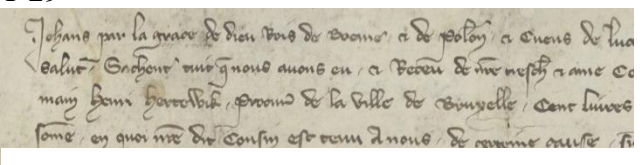 Jehans par la grace de dieu Rois de Boeme . et de Polon . et Cuens de luc
salut Sachent tuit q nous avons eu . et Receu de nre tresch et ame Co
main Henri Hertewik . de la Ville de Bruxelle . Cent livres
some . en quoi nre dit Cousin est tenu A nous . de certeine cause .